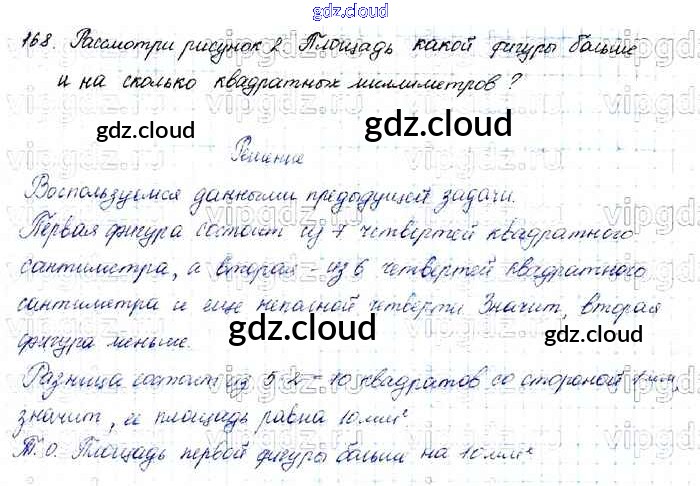 gdz.cloud
168. Рассмотри рисунок 2. Площадь какой фигуры больше
и на сколько квадратных миллиметров?
gdz.cloud
gdz.cloud
Решение
Воспользуемся данными предыдущей задачи.
Первая фигура состоит из 7 четвертей квадратного
сантиметра, а вторая - из 6 четвертей квадратного
сантиметра и еще неполной четверти. Значит, вторая
фигура меньше.
gdz.cloud
gdz.cloud
Разница состоит из 5·2=10 квадратов со стороной 1 мм,
значит, ее площадь равна 10 мм²
Т.о. Площадь первой фигуры больше на 10 мм²
gdz.cloud
gdz.cloud